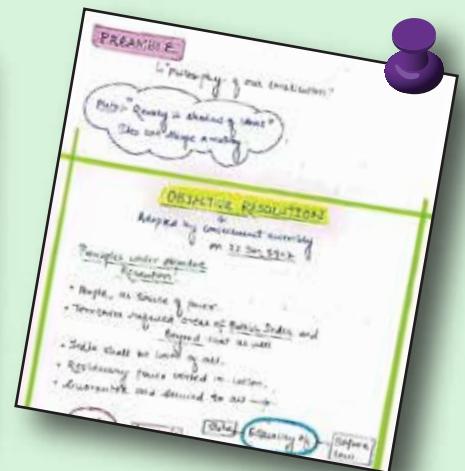 PREAMBLE
"Philosophy of our constitution"
Plato:- "Reality is shadow of ideas"
Idea can shape a reality
OBJECTIVE RESOLUTION
Adopted by constituent assembly
on 22 Jan, 1947
Principles under objective
Resolution
• People, as source of power.
• Territories areas of British India and
Beyond that as well
• India shall be of all.
• Residuary power vested in union.
• Guarantee and secured to all →
Equality of
Before
law